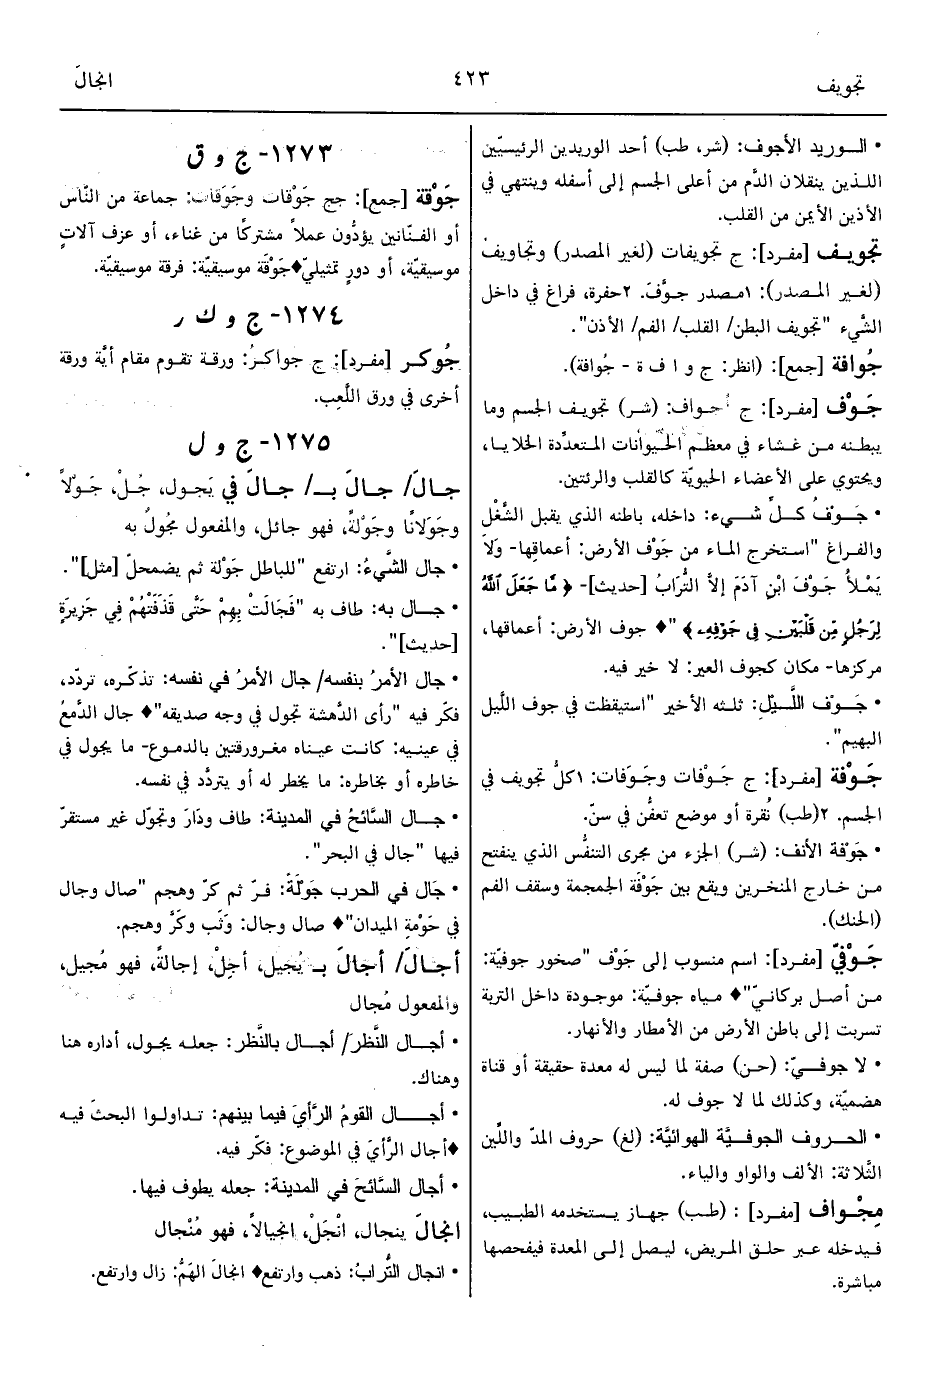 تجويف
٤٢٣
انجالَ
• الـوريد الأجوف: (شر، طب) أحد الوريدين الرئيسيّين
اللـذين ينقلان الدَّم من أعلى الجسم إلى أسفله وينتهي في
الأذين الأيمن من القلب.
تجويـف [مفـرد]: ج تجويفات (لغير المصدر) وتجاويفُ
(لغـير المـصدر): ١مـصدر جـوَّفَ. ٢حفرة، فراغ في داخل
الشَّيء "تجويف البطن/ القلب/ الفم/ الأذن".
جُوافة [جمع]: (انظر: ج و ا ف ة - جُوافة).
جَـوْف [مفـرد]: ج أجـواف: (شـر) تجويـف الجسم وما
يبطنه مـن غـشاء في معظـم الحَيـوانات المـتعدِّدة الخلايـا،
ويحتوي على الأعضاء الحيويّة كالقلب والرئتين.
• جَـوْفُ كـلِّ شـيء: داخله، باطنه الذي يقبل الشَّغْل
والفراغ "اسـتخرج المـاء من جَوْف الأرض: أعماقِها- وَلاَ
يَمْـلأُ جَـوْفَ ابْنِ آدَمَ إلاَّ التُّرَابُ [حديث]- ﴿ مَّا جَعَلَ ٱللَّهُ
لِرَجُلٍ مِّن قَلْبَيْنِ فِي جَوْفِهِۦ ﴾ "♦ جوف الأرض: أعماقها،
مركزها- مكان كجوف العير: لا خير فيه.
• جَـوْف اللَّـيْل: ثلـثه الأخير "استيقظت في جوف اللَّيل
البهيم".
جَـوْفة [مفـرد]: ج جَـوْفات وجَـوَفات: ١كلُّ تجويف في
الجسم. ٢(طب) نُقرة أو موضع تعفُّن في سنّ.
• جَوْفة الأنف: (شـر) الجزء من مجرى التنفُّس الذي ينفتح
مـن خـارج المنخـرين ويقع بين جَوْفَة الجمجمة وسقف الفم
(الحنك).
جَـوْفيّ [مفـرد]: اسـم منـسوب إلى جَوْف "صخور جوفيّة:
مـن أصـل بركانيّ"♦ مـياه جوفـيّة: موجـودة داخل التربة
تسربت إلى باطن الأرض من الأمطار والأنهار.
• لا جوفـيّ: (حـن) صفة لما ليس له معدة حقيقة أو قناة
هضميّة، وكذلك لما لا جوف له.
• الحـروف الجوفـيَّة الهوائيَّة: (لغ) حروف المدّ واللِّين
الثَّلاثة: الألف والواو والياء.
مِجْـواف [مفـرد] : (طـب) جهـاز يـستخدمه الطبـيب،
فـيدخله عـبر حلـق المـريض، ليـصل إلـى المعدة فيفحصها
مباشرة.
١٢٧٣- ج و ق
جَوْقة [جمع]: جج جَوْقات وجَوَقات: جماعة من النّاس
أو الفـنّانين يؤدُّون عملاً مشتركًا من غناء، أو عزف آلاتٍ
موسيقيّة، أو دورٍ تمثيليّ♦جَوْقَة موسيقيّة: فرقة موسيقيّة.
١٢٧٤- ج و ك ر
جُوكـر [مفـرد]: ج جواكـرُ: ورقـة تقـوم مقام أيَّة ورقة
أخرى في ورق اللَّعِب.
١٢٧٥- ج و ل
جـالَ/ جـالَ بــ/ جـالَ في يَجـول، جُـلْ، جَـوْلاً
وجَوَلانًا وجَوْلةً، فهو جائل، والمفعول مَجُولٌ به
• جال الشَّيءُ: ارتفع "للباطل جَوْلة ثم يضمحلّ [مثل]".
• جـال به: طاف به "فَجَالَتْ بِهِمْ حَتَّى قَذَفَتْهُمْ فِي جَزِيرَةٍ
[حديث]".
• جال الأمرُ بنفسه/ جال الأمرُ في نفسه: تذكّره، تردّد،
فكّر فيه "رأى الدَّهشة تجول في وجه صديقه"♦ جال الدَّمعُ
في عينـيه: كانـت عيـناه مغـرورقتين بالدموع- ما يجول في
خاطره أو بخاطره: ما يخطر له أو يتردَّد في نفسه.
• جـال السَّائحُ في المدينة: طاف ودَارَ وتجوّل غير مستقرّ
فيها "جال في البحر".
• جَال في الحرب جَوْلَةً: فـرّ ثم كرّ وهجم "صال وجال
في حَوْمةِ الميدان"♦ صال وجال: وَثَب وكَرَّ وهجم.
أجـالَ/ أجالَ بـ يُجيل، أجِلْ، إجالةً، فهو مُجيل،
والمفعول مُجال
• أجـال النَّظر/ أجـال بالنَّظر: جعلـه يجول، أداره هنا
وهناك.
• أجــال القومُ الرَّأيَ فيما بينهم: تـداولـوا البحثَ فيـه
♦أجال الرَّأيَ في الموضوع: فكّر فيه.
• أجال السَّائحَ في المدينة: جعله يطوف فيها.
انجالَ ينجال، انْجَلْ، انجيالاً، فهو مُنْجال
• انجال التُّرابُ: ذهب وارتفع♦ انجالَ الهَمُّ: زال وارتفع.